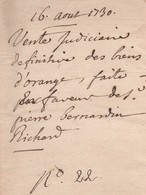 16. aout 1730.
Vente Judiciaire
definitive des biens
d'orange, faite
En faveur de s.r
pierre bernardin
Richard
No. 22